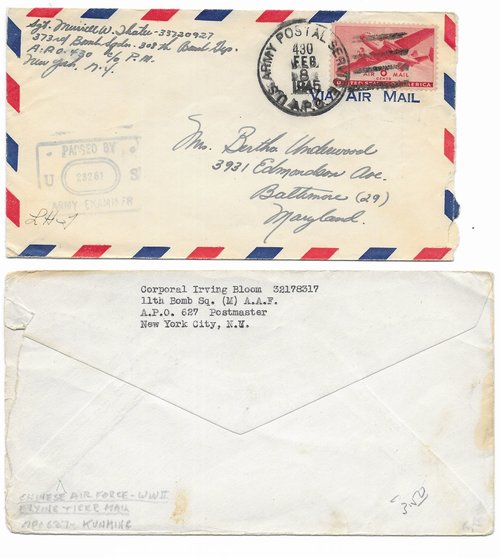 Sgt. Murrell W. Thater - 33720927
373rd Bomb Sqdn. 308th Bomb Grp.
A.P.O. 430 c/o P.M.
New York, N.Y.
U.S. ARMY POSTAL SERVICE A.P.O.
430
FEB
8
1945
AIR 6 MAIL
CENTS
UNITED STATES OF AMERICA
VIA AIR MAIL
PASSED BY
U 23261 S
ARMY EXAMINER
Mrs. Bertha Underwood
3931 Edmondson Ave.
Baltimore (29)
Maryland.
Corporal Irving Bloom 32178317
11th Bomb Sq. (M) A.A.F.
A.P.O. 627 Postmaster
New York City, N.Y.
CHINESE AIR FORCE - WWII
FLYING TIGER MAIL
APO 627 - KUNMING